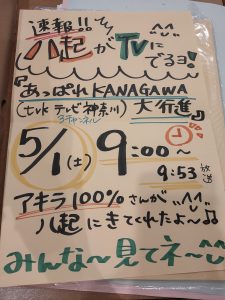 速報!!
八起がTVに
でるヨ!
『あっぱれKANAGAWA
(tvk テレビ神奈川) 大行進』
3チャンネル
5/1(土) 9:00~
9:53 放送
アキラ100%さんが
八起にきてくれたよ~♫
みんな~見てネ~